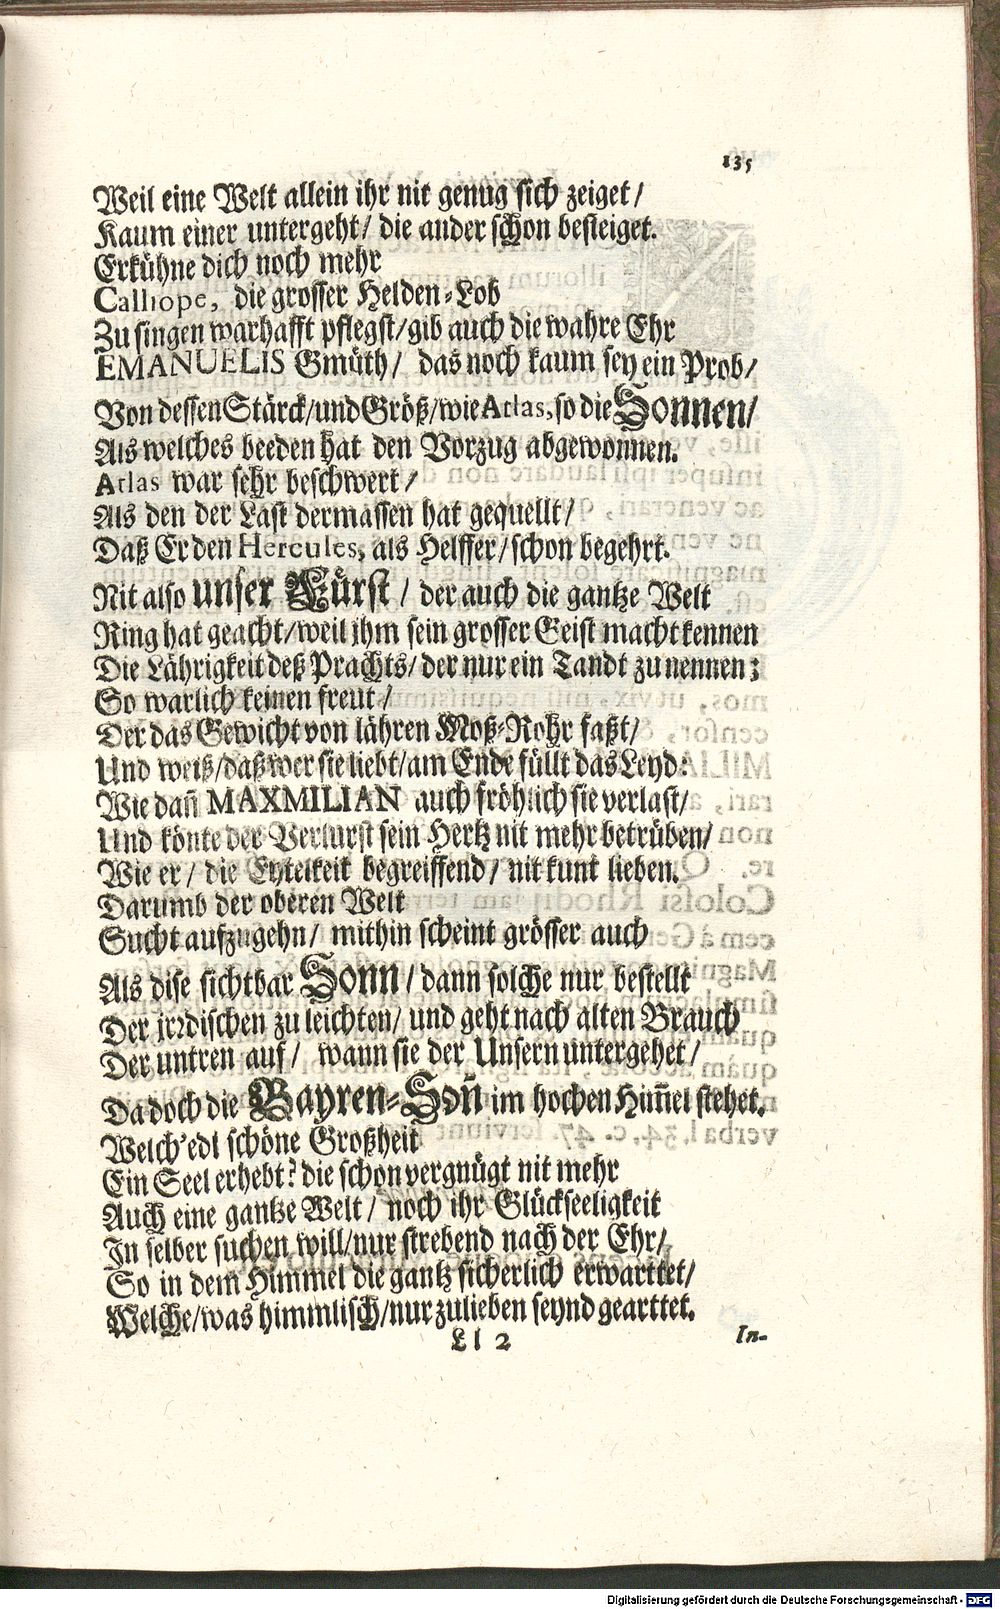 135
Weil eine Welt allein ihr nit genug sich zeiget/
Kaum einer untergeht/ die ander schon besteiget.
Erkühne dich noch mehr
Calliope, die grosser Helden-Lob
Zu singen warhafft pflegst/gib auch die wahre Ehr
EMANUELIS Gmüth/ das noch kaum sey ein Prob/
Von dessen Stärck/und Größ/wie Atlas, so die Sonnen/
Als welches beeden hat den Vorzug abgewonnen.
Atlas war sehr beschwert/
Als den der Last dermassen hat gequellt/
Daß Er den Hercules, als Helffer/schon begehrt.
Nit also unser Fürst / der auch die gantze Welt
Ring hat geacht/weil ihm sein grosser Geist macht kennen
Die Lährigkeit deß Prachts/ der nur ein Tandt zu nennen;
So warlich keinen freut/
Der das Gewicht von lähren Moß-Rohr faßt/
Und weiß/daß wer sie liebt/am Ende füllt das Leyd:
Wie dañ MAXMILIAN auch fröhlich sie verlast/
Und könte der Verlurst sein Hertz nit mehr betrüben/
Wie er/ die Eytelkeit begreiffend/ nit kunt lieben.
Darumb der oberen Welt
Sucht aufzugehn/ mithin scheint grösser auch
Als dise sichtbar Sonn/ dann solche nur bestellt
Der jrrdischen zu leichten/ und geht nach alten Brauch
Der untren auf/ wann sie der Unsern untergehet/
Da doch die Bayren-Soñ im hochen Him̃el stehet.
Welch'edl schöne Großheit
Ein Seel erhebt? die schon vergnügt nit mehr
Auch eine gantze Welt/ noch ihr Glückseeligkeit
In selber suchen will/nur strebend nach der Ehr/
So in dem Himmel die gantz sicherlich erwarttet/
Welche/was himmlisch/nur zulieben seynd gearttet.
Ll 2
In-
Digitalisierung gefördert durch die Deutsche Forschungsgemeinschaft - DFG